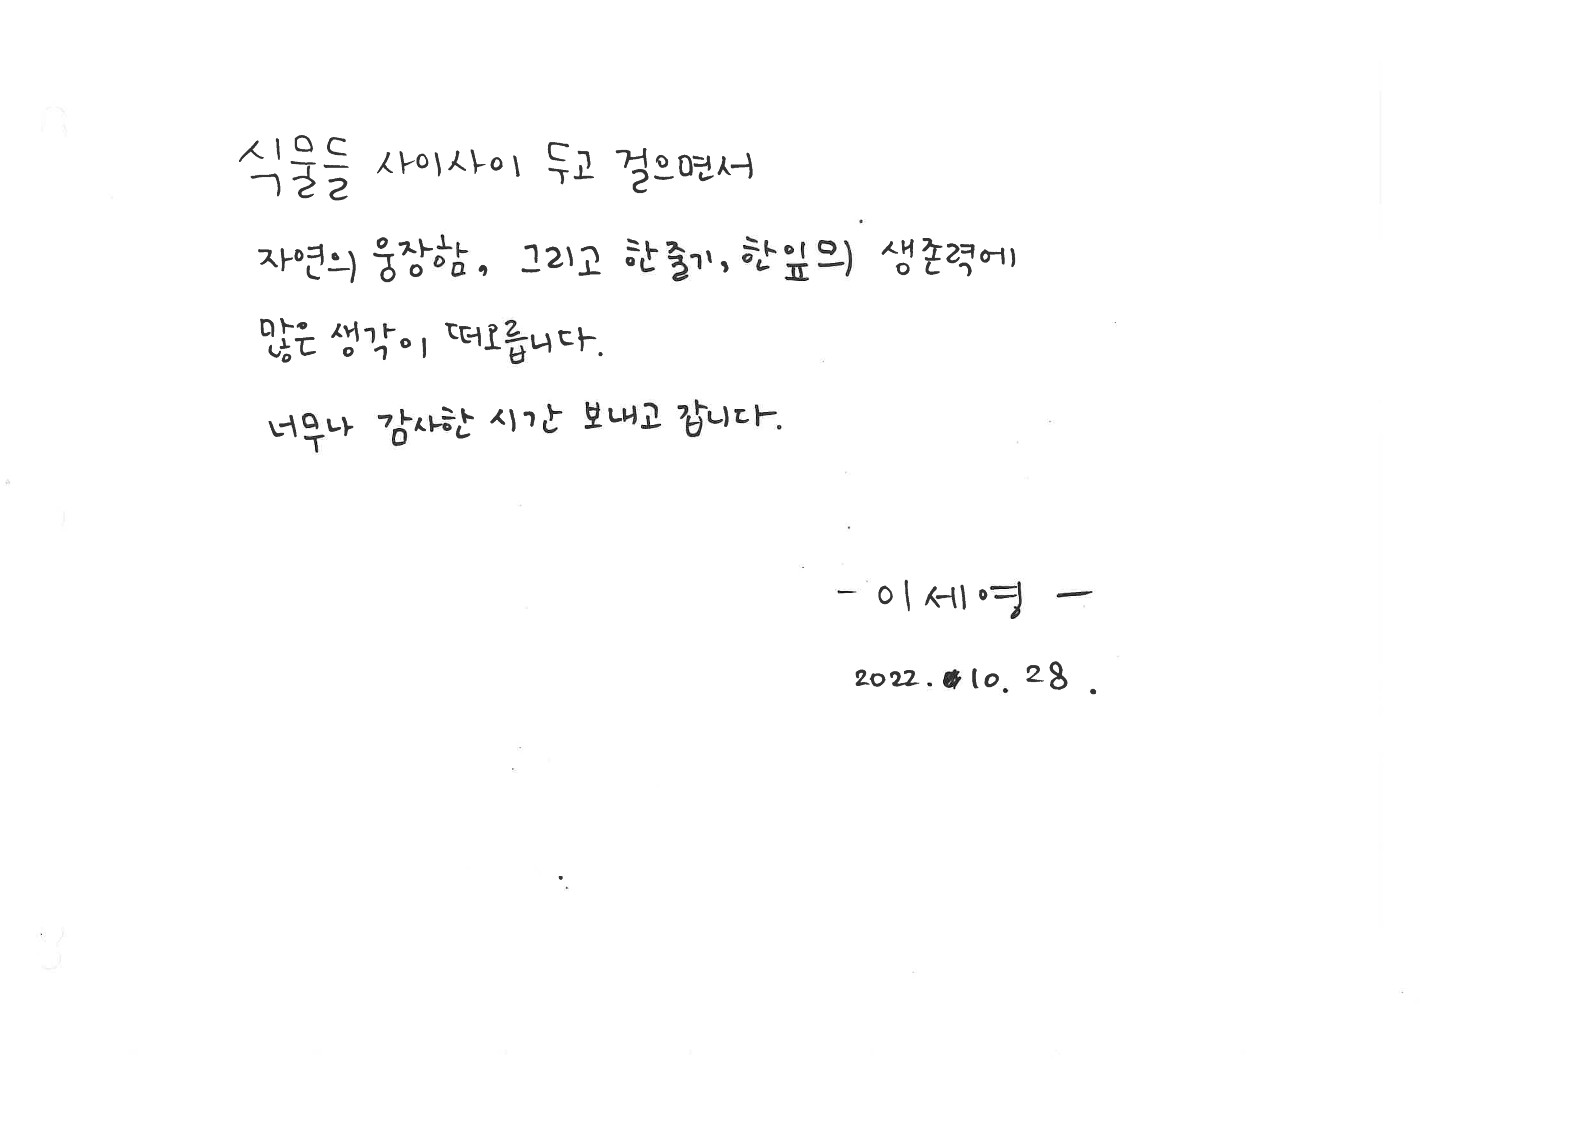 식물들 사이사이 두고 걸으면서
자연의 웅장함, 그리고 한줄기, 한잎의 생존력에
많은 생각이 떠오릅니다.
너무나 감사한 시간 보내고 갑니다.
- 이세영 -
2022. 10. 28.